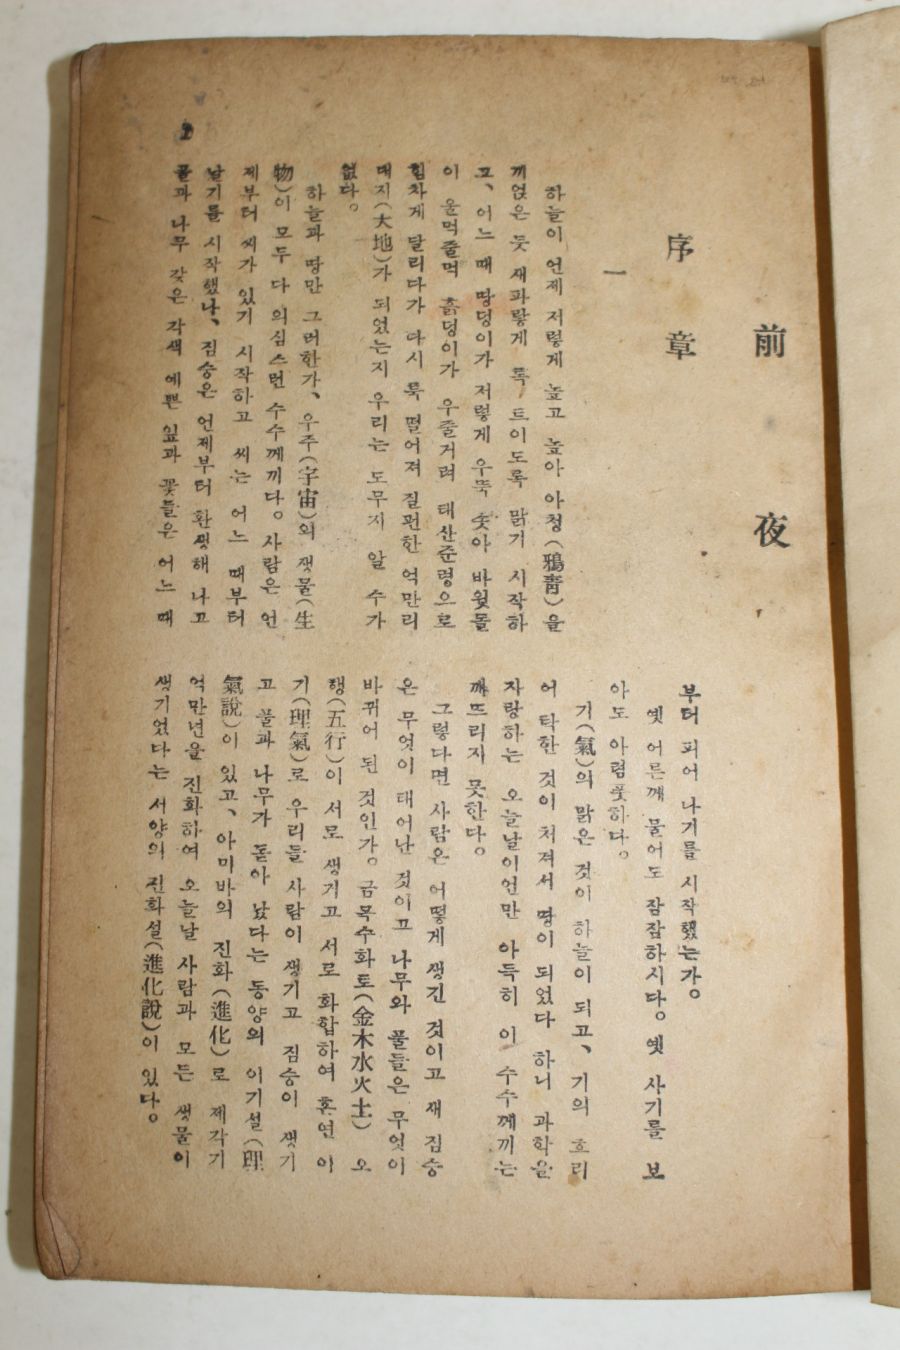 前夜
序章
一
하늘이 언제 저렇게 높고 높아 아청(鴉靑)을
끼얹은 듯 새파랗게 톡 트이도록 맑기 시작하
고、이느 때 땅덩이가 저렇게 우뚝 솟아 바윗돌
이 울먹줄먹 흙덩이가 우줄거려 태산준령으로
힘차게 달리다가 다시 뚝 떨어져 질펀한 억만리
대지(大地)가 되었는지 우리는 도무지 알 수가
없다。
하늘과 땅만 그러한가、우주(宇宙)의 생물(生
物)이 모두 다 의심스런 수수께끼다。사람은 언
제부터 씨가 있기 시작하고 씨는 어느 때부터
날기를 시작했나、짐승은 언제부터 환생해 나고
풀과 나무 갖은 각색 예쁜 잎과 꽃들은 어느 때
부터 피어 나기를 시작했는가。
옛 어른께 물어도 잠잠하시다。옛 사기를 보
아도 아렴풋하다。
기(氣)의 맑은 것이 하늘이 되고、기의 흐리
어 탁한 것이 처져서 땅이 되었다 하니 과학을
자랑하는 오늘날이언만 아득히 이 수수께끼는
깨뜨리지 못한다。
그렇다면 사람은 어떻게 생긴 것이고 새 짐승
은 무엇이 태어난 것이고 나무와 풀들은 무엇이
바뀌어 된 것인가。금목수화토(金木水火土) 오
행(五行)이 서로 생기고 서로 화합하여 혼연 이
기(理氣)로 우리들 사람이 생기고 짐승이 생기
고 풀과 나무가 돋아 났다는 동양의 이기설(理
氣說)이 있고、아미바의 진화(進化)로 제각기
억만년을 진화하여 오늘날 사람과 모든 생물이
생기었다는 서양의 진화설(進化說)이 있다。